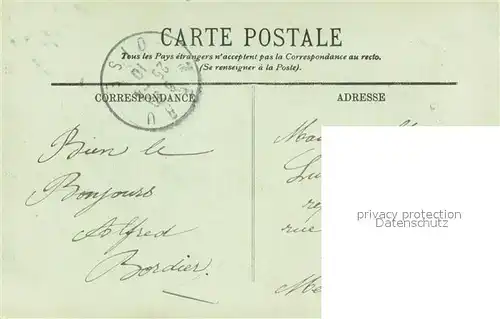 CARTE POSTALE
Tous les Pays étrangers n'acceptent pas la Correspondance au recto.
(Se renseigner à la Poste).
CORRESPONDANCE
ADRESSE
OISE
Bien le
Bonjours
Alfred
Bordier.
rue
privacy protection
Datenschutz